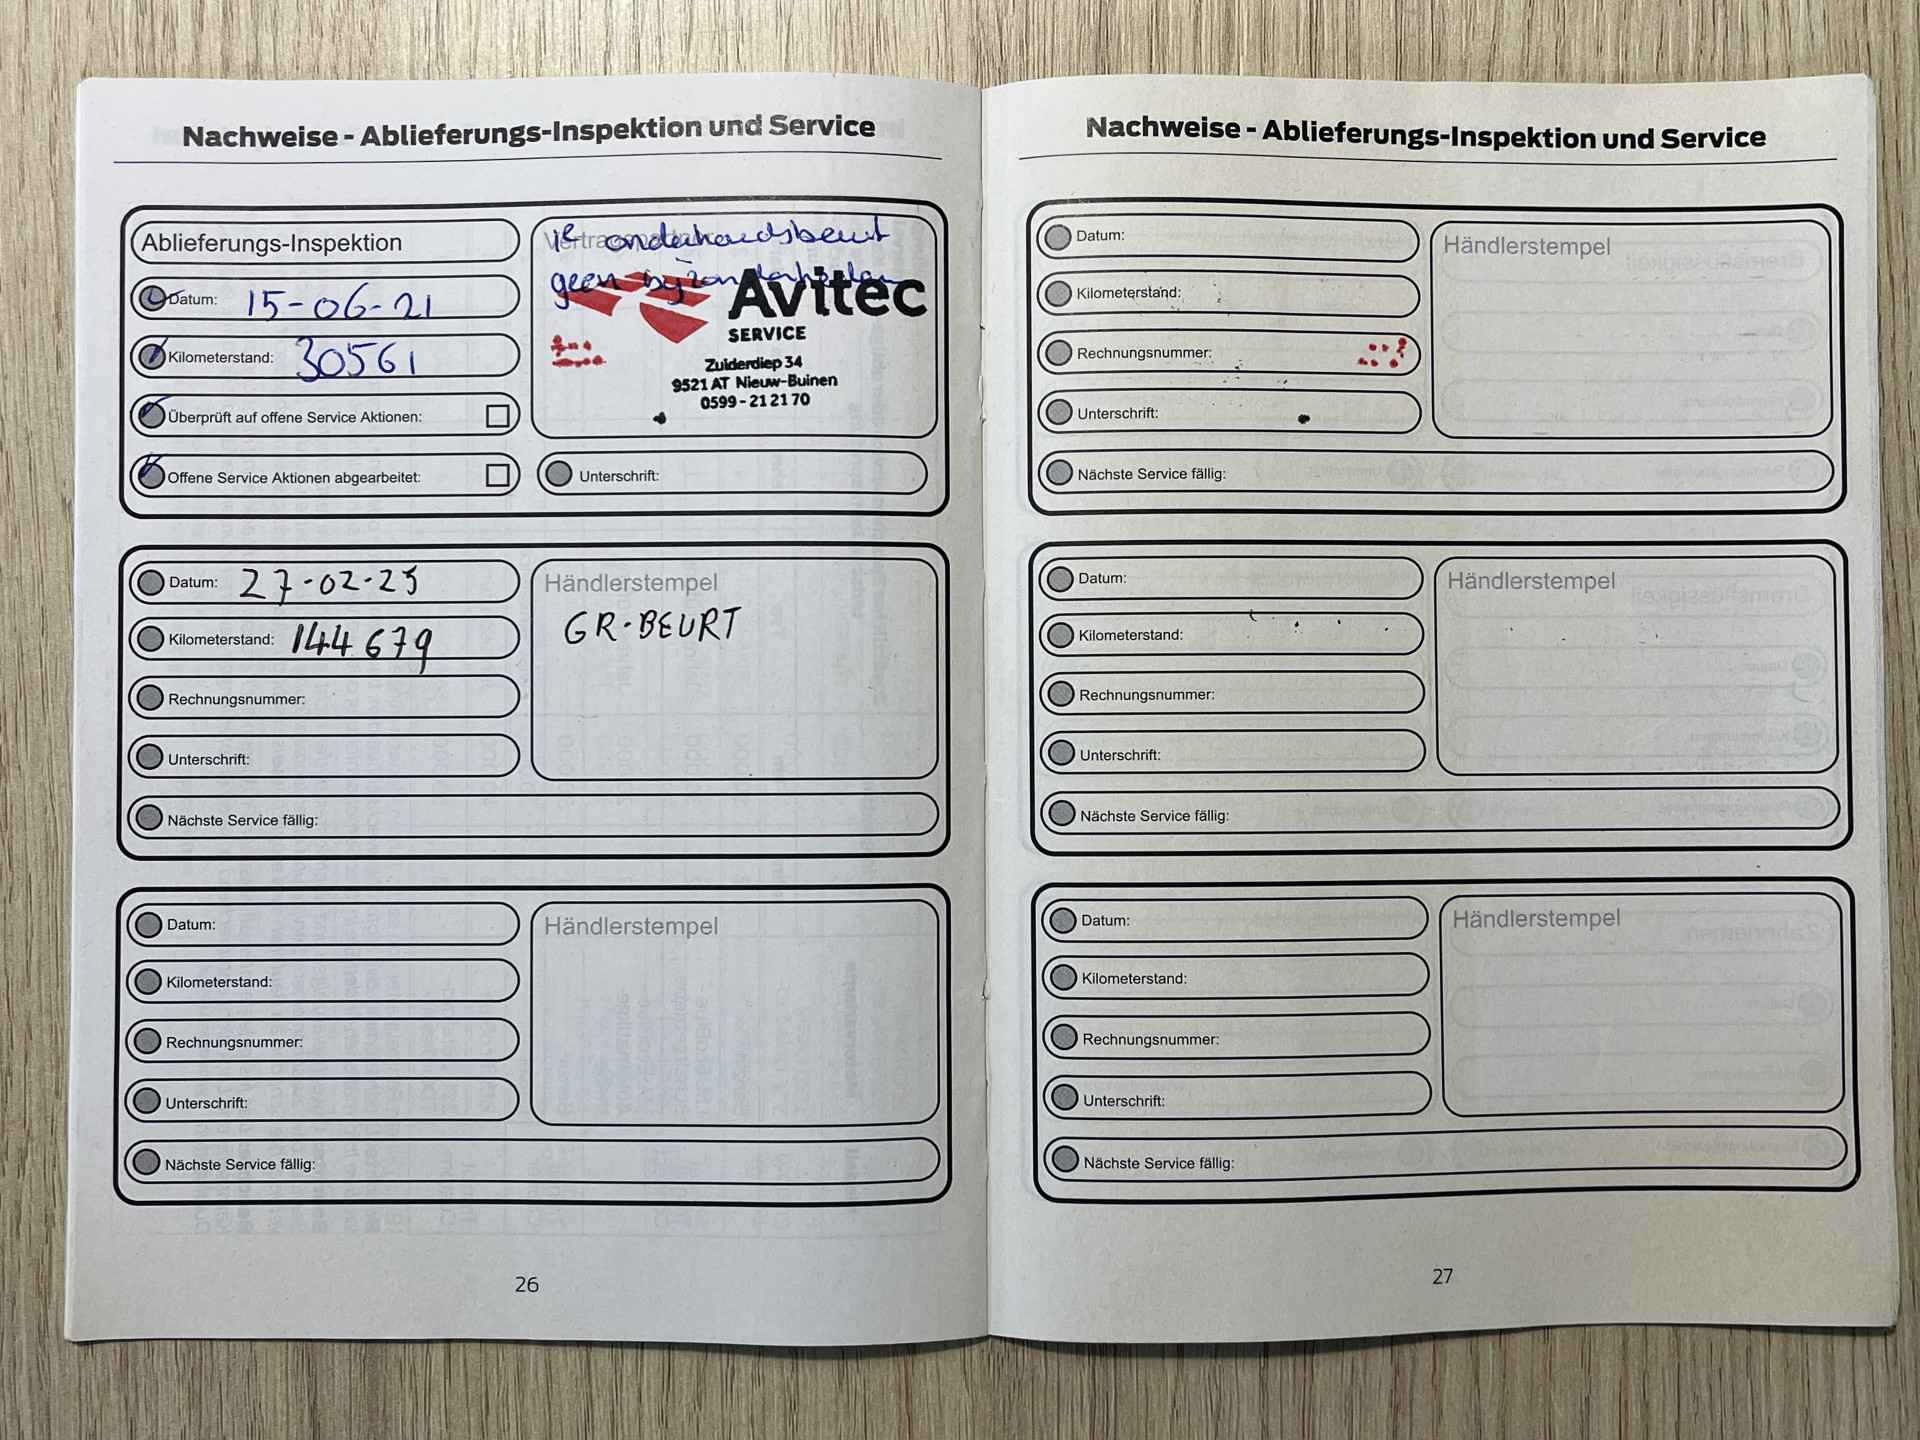 Nachweise - Ablieferungs-Inspektion und Service
Ablieferungs-Inspektion
Datum: 15-06-21
Kilometerstand: 30561
Überprüft auf offene Service Aktionen:
Offene Service Aktionen abgearbeitet:
1e onderhoudsbeurt
geen bijzonderheden
Avitec
SERVICE
Zuiderdiep 34
9521 AT Nieuw-Buinen
0599 - 21 21 70
Unterschrift:
Datum: 27-02-25
Kilometerstand: 144679
Rechnungsnummer:
Unterschrift:
Nächste Service fällig:
Händlerstempel
GR·BEURT
Datum:
Kilometerstand:
Rechnungsnummer:
Unterschrift:
Nächste Service fällig:
Händlerstempel
26
Nachweise - Ablieferungs-Inspektion und Service
Datum:
Kilometerstand:
Rechnungsnummer:
Unterschrift:
Nächste Service fällig:
Händlerstempel
Datum:
Kilometerstand:
Rechnungsnummer:
Unterschrift:
Nächste Service fällig:
Händlerstempel
Datum:
Kilometerstand:
Rechnungsnummer:
Unterschrift:
Nächste Service fällig:
Händlerstempel
27